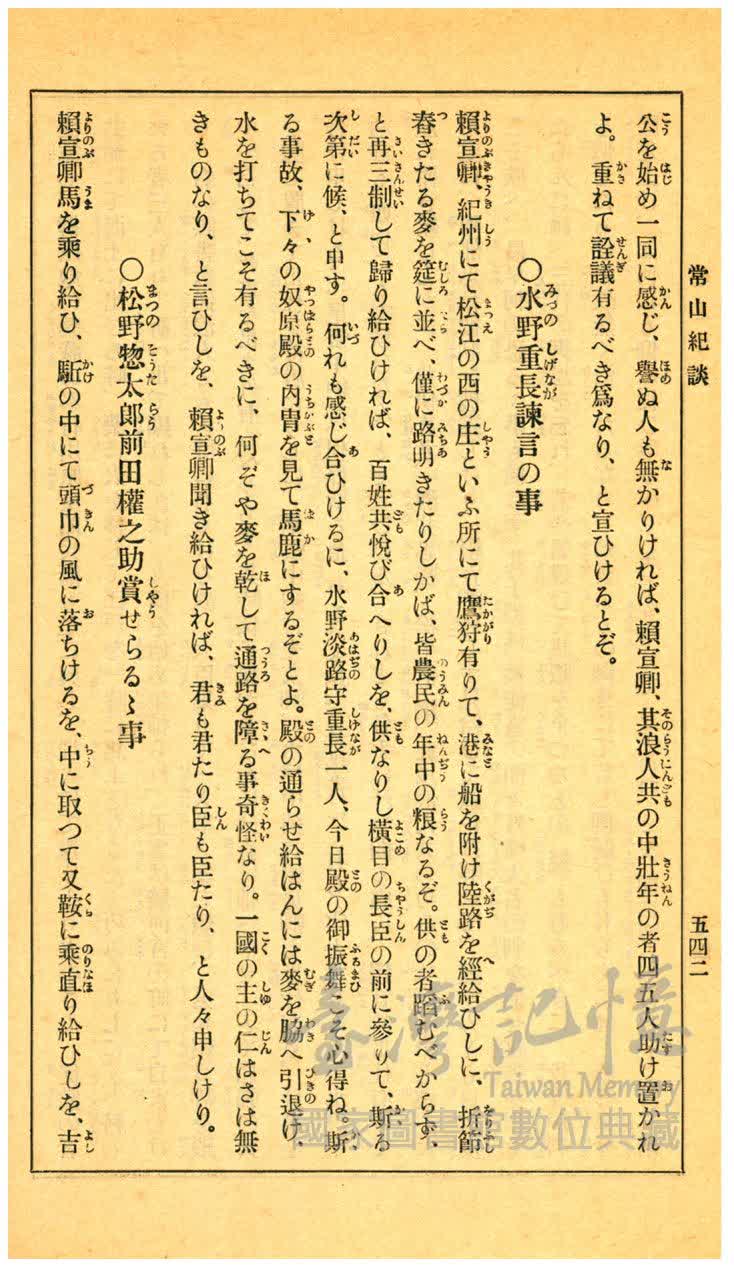 常山紀談
五四二
公を始め一同に感じ、譽ぬ人も無かりければ、賴宣卿、其浪人共の中壯年の者四五人助け置かれ
よ。重ねて詮議有るべき爲なり、と宣ひけるとぞ。
〇水野重長諫言の事
賴宣卿、紀州にて松江の西の庄といふ所にて鷹狩有りて、港に船を附け陸路を經給ひしに、折節
舂きたる麥を筵に並べ、僅に路明きたりしかば、皆農民の年中の粮なるぞ。供の者蹈むべからず、
と再三制して歸り給ひければ、百姓共悅び合へりしを、供なりし橫目の長臣の前に參りて、斯る
次第に候、と申す。何れも感じ合ひけるに、水野淡路守重長一人、今日殿の御振舞こそ心得ね。斯
る事故、下々の奴原殿の內冑を見て馬鹿にするぞとよ。殿の通らせ給はんには麥を脇へ引退け、
水を打ちてこそ有るべきに、何ぞや麥を乾して通路を障る事奇怪なり。一國の主の仁はさは無
きものなり、と言ひしを、賴宣卿聞き給ひければ、君も君たり臣も臣たり、と人々申しけり。
〇松野惣太郎前田權之助賞せらるゝ事
賴宣卿馬を乘り給ひ、駈の中にて頭巾の風に落ちけるを、中に取つて又鞍に乘直り給ひしを、吉
臺灣記憶
Taiwan Memory
國家圖書館數位典藏